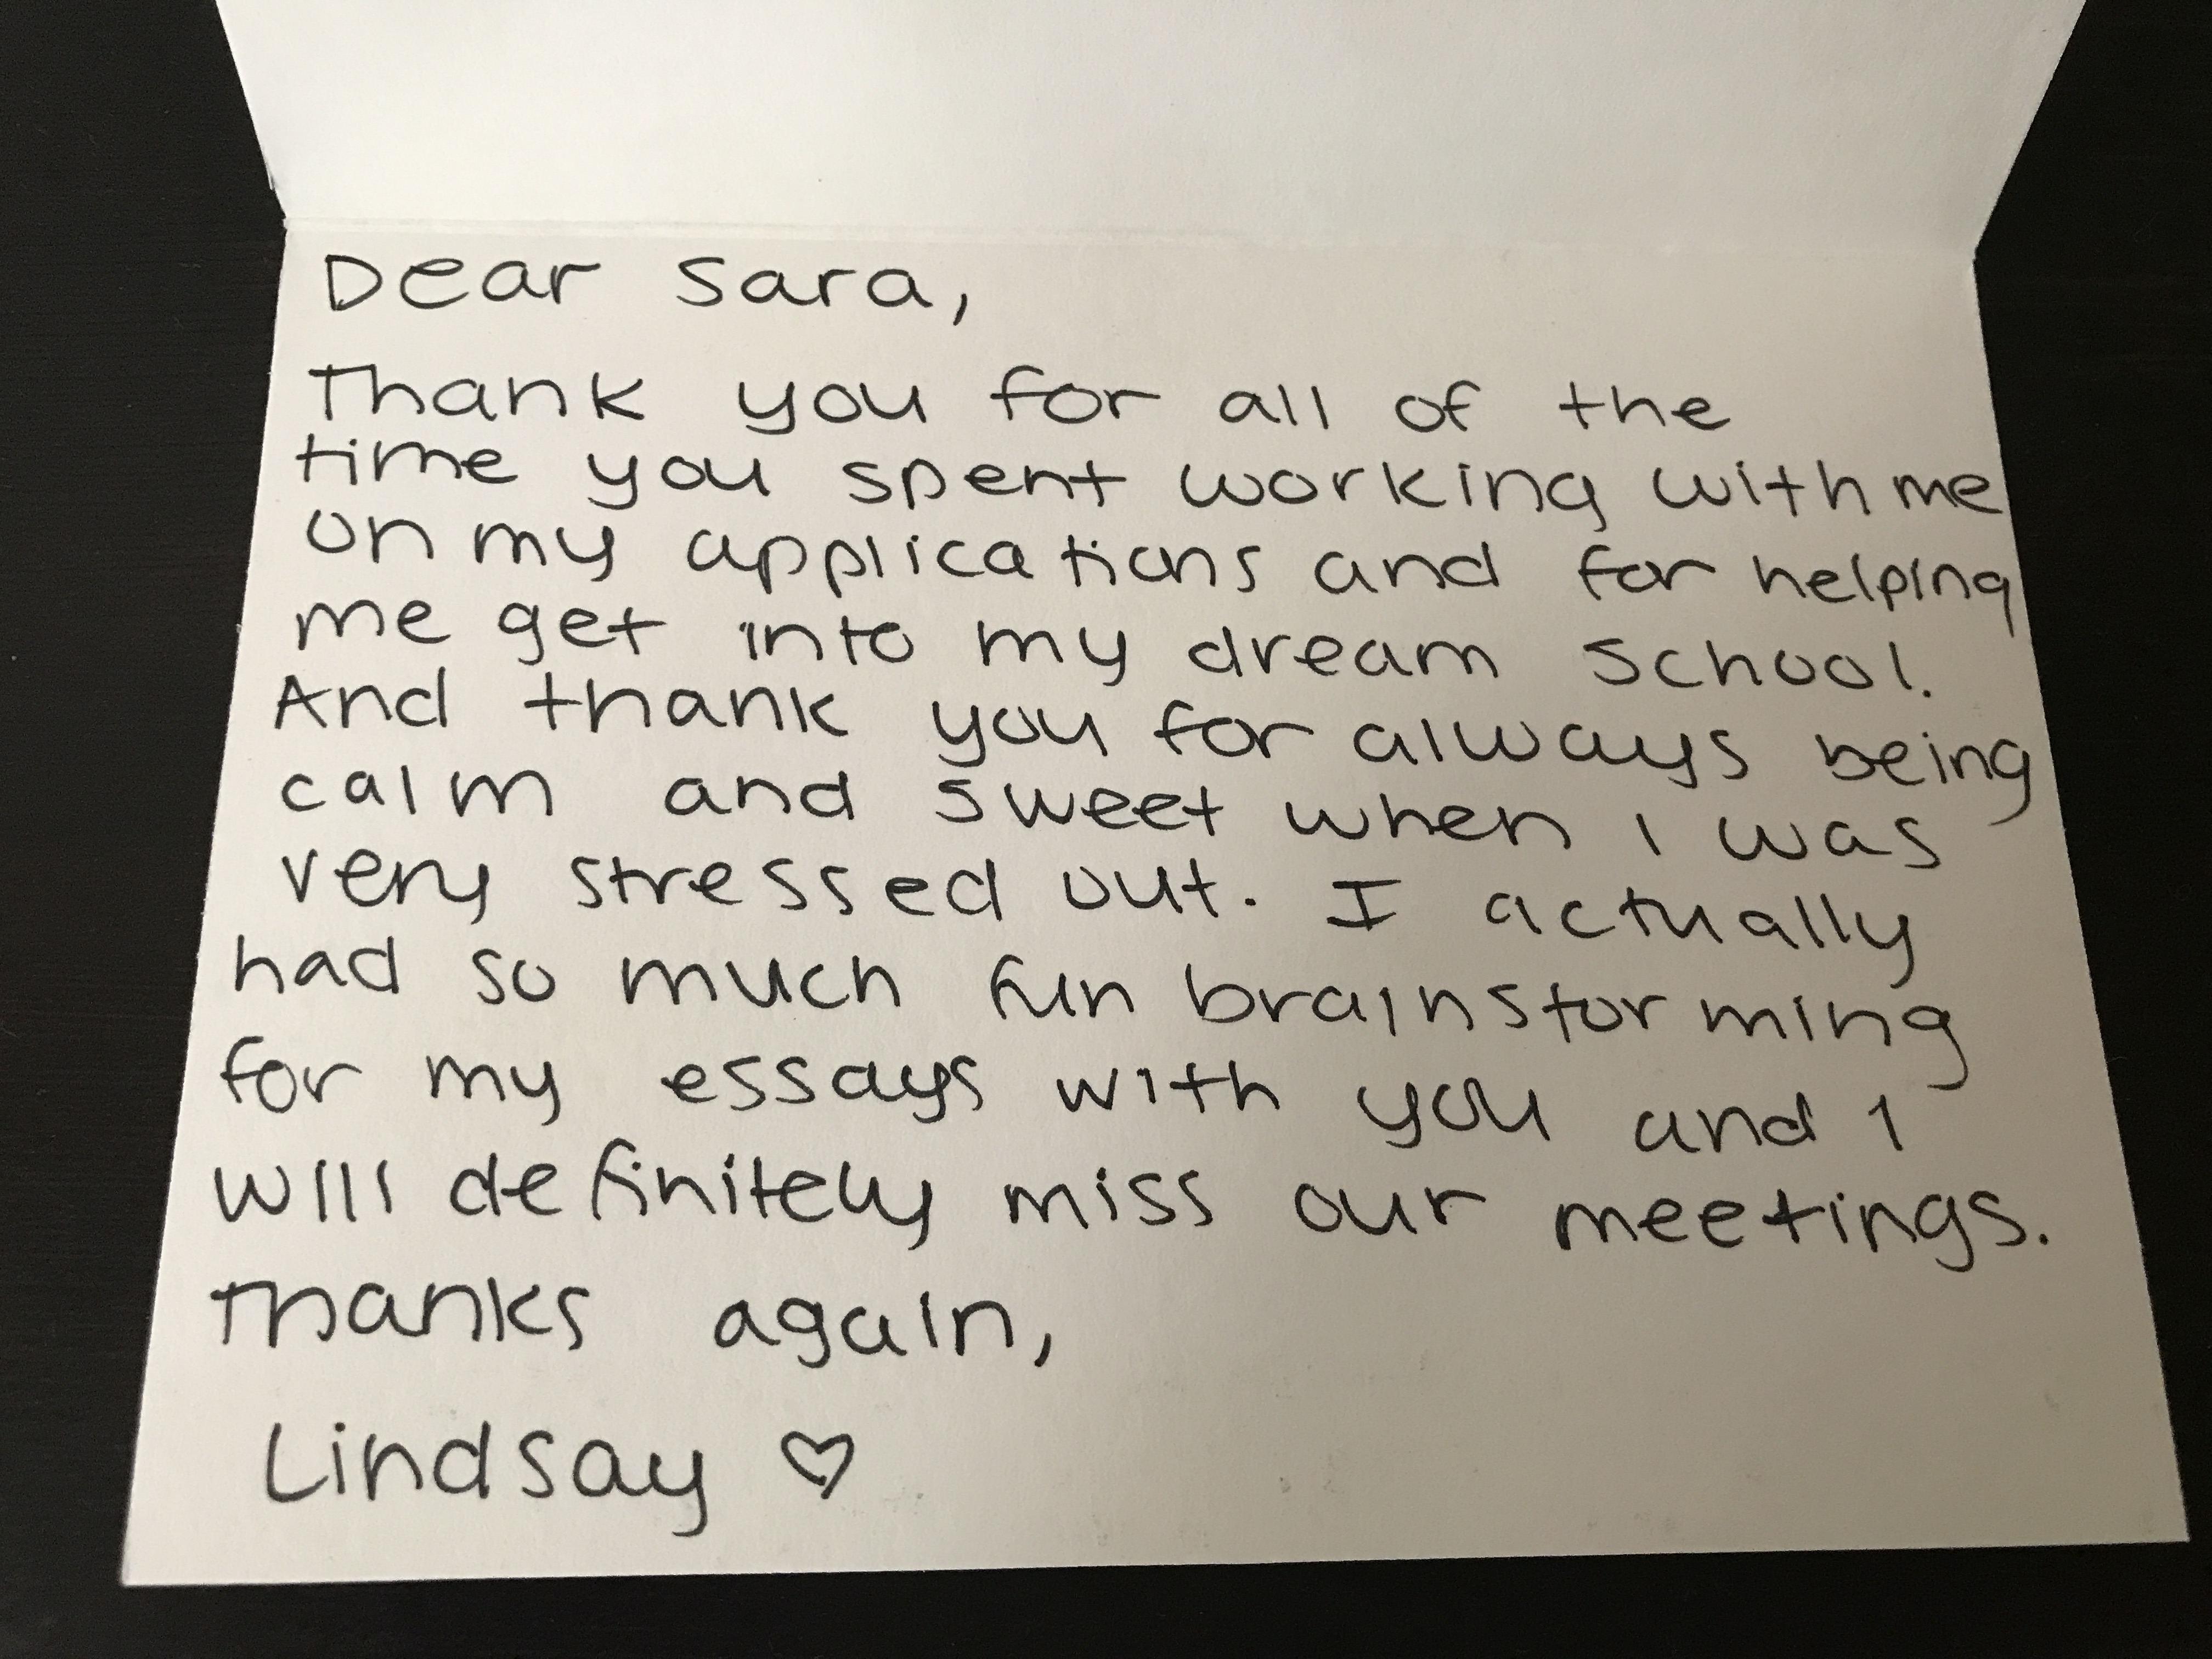 Dear Sara,
Thank you for all of the
time you spent working with me
on my applications and for helping
me get into my dream school.
And thank you for always being
calm and sweet when I was
very stressed out. I actually
had so much fun brainstorming
for my essays with you and I
will definitely miss our meetings.
Thanks again,
Lindsay ♡